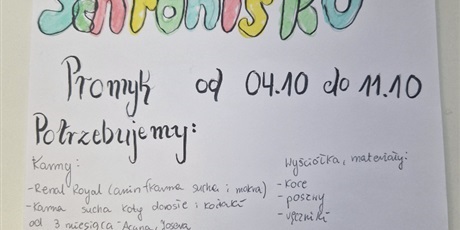 Schronisku
Promyk od 04.10 do 11.10
Potrzebujemy:
Karmy:
- Renal Royal (animfkarma sucha i mokra)
- Karma sucha koty dorosłe i kociaki
od 3 miesiąca "Acana, Josera
Wyściółka, materiały:
- Koce
- poszwy
- ręczniki